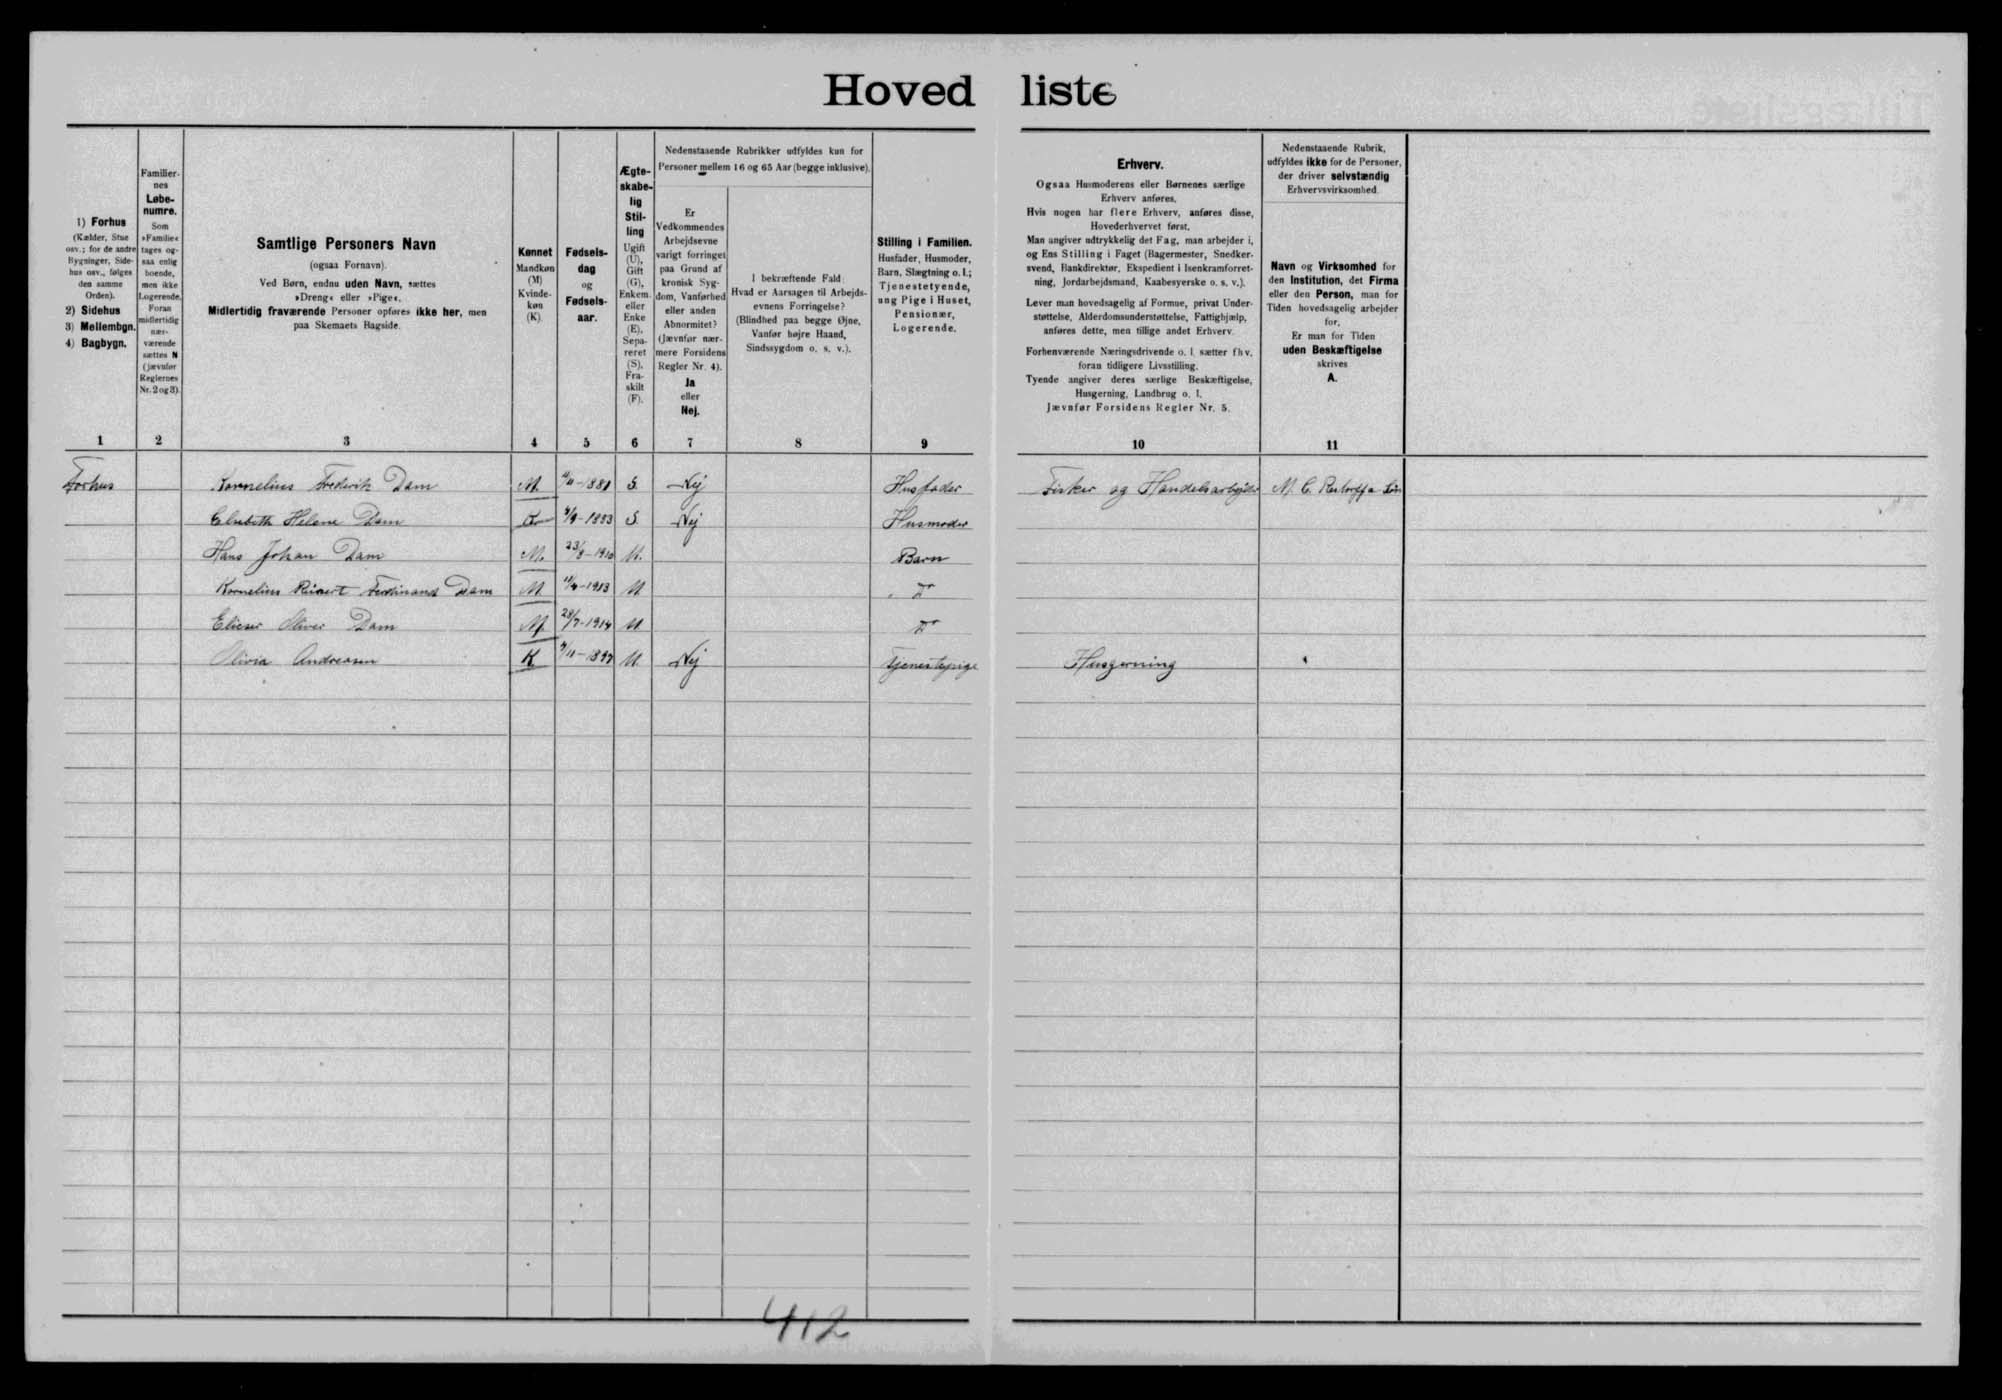 Hovedliste
1) Forhus
(Kælder, Stue
osv.; for de andre
Bygninger, Side-
hus osv., følges
den samme
Orden).
2) Sidehus
3) Mellembgn.
4) Bagbygn.
Familier-
nes
Løbe-
numre.
Som
»Familie«
tages og-
saa enlig
boende,
men ikke
Logerende.
Foran
midlertidig
nær-
værende
sættes N
(jævnfør
Reglernes
Nr. 2 og 3).
Samtlige Personers Navn
(ogsaa Fornavn).
Ved Børn, endnu uden Navn, sættes
»Dreng« eller »Pige«.
Midlertidig fraværende Personer opføres ikke her, men
paa Skemaets Bagside.
Kønnet
Mandkøn
(M)
Kvinde-
køn
(K).
Fødsels-
dag
og
Fødsels-
aar.
Ægte-
skabe-
lig
Stil-
ling
Ugift
(U),
Gift
(G),
Enkem.
eller
Enke
(E),
Sepa-
reret
(S),
Fra-
skilt
(F).
Nedenstaaende Rubrikker udfyldes kun for
Personer mellem 16 og 65 Aar (begge inklusive).
Er
Vedkommendes
Arbejdsevne
varigt forringet
paa Grund af
kronisk Syg-
dom, Vanførhed
eller anden
Abnormitet?
(Jævnfør nær-
mere Forsidens
Regler Nr. 4).
Ja
eller
Nej.
I bekræftende Fald:
Hvad er Aarsagen til Arbejds-
evnens Forringelse?
(Blindhed paa begge Øjne,
Vanfør højre Haand,
Sindssygdom o. s. v.).
Stilling i Familien.
Husfader, Husmoder,
Barn, Slægtning o. l.;
Tjenestetyende,
ung Pige i Huset,
Pensionær,
Logerende.
Erhverv.
Ogsaa Husmoderens eller Børnenes særlige
Erhverv anføres.
Hvis nogen har flere Erhverv, anføres disse,
Hovederhvervet først.
Man angiver udtrykkelig det Fag, man arbejder i,
og Ens Stilling i Faget (Bagermester, Snedker-
svend, Bankdirektør, Ekspedient i Isenkramforret-
ning, Jordarbejdsmand, Kaabesyerske o. s. v.).
Lever man hovedsagelig af Formue, privat Under-
støttelse, Alderdomsunderstøttelse, Fattighjælp,
anføres dette, men tillige andet Erhverv.
Forhenværende Næringsdrivende o. l. sætter fhv.
foran tidligere Livsstilling.
Tyende angiver deres særlige Beskæftigelse,
Husgerning, Landbrug o. l.
Jævnfør Forsidens Regler Nr. 5.
Nedenstaaende Rubrik,
udfyldes ikke for de Personer,
der driver selvstændig
Erhvervsvirksomhed.
Navn og Virksomhed for
den Institution, det Firma
eller den Person, man for
Tiden hovedsagelig arbejder
for.
Er man for Tiden
uden Beskæftigelse
skrives
A.
1 2 3 4 5 6 7 8 9 10 11
Forhus Kornelius Frederik Dam M. 1881 G. Nej Husfader Fisker og Handelsarbejder M. C.
Elsebeth Helene Dam 1883 G. Nej Husmoder
Hans Johan Dam M. 23/8-1910 U. Barn
Kornelius Ferdinand Dam M 11/4-1913 U do
Elieser Oliver Dam M 28/7-1914 U do
Olivia Andreasen K U. Nej Tjenestepige Husgerning
412